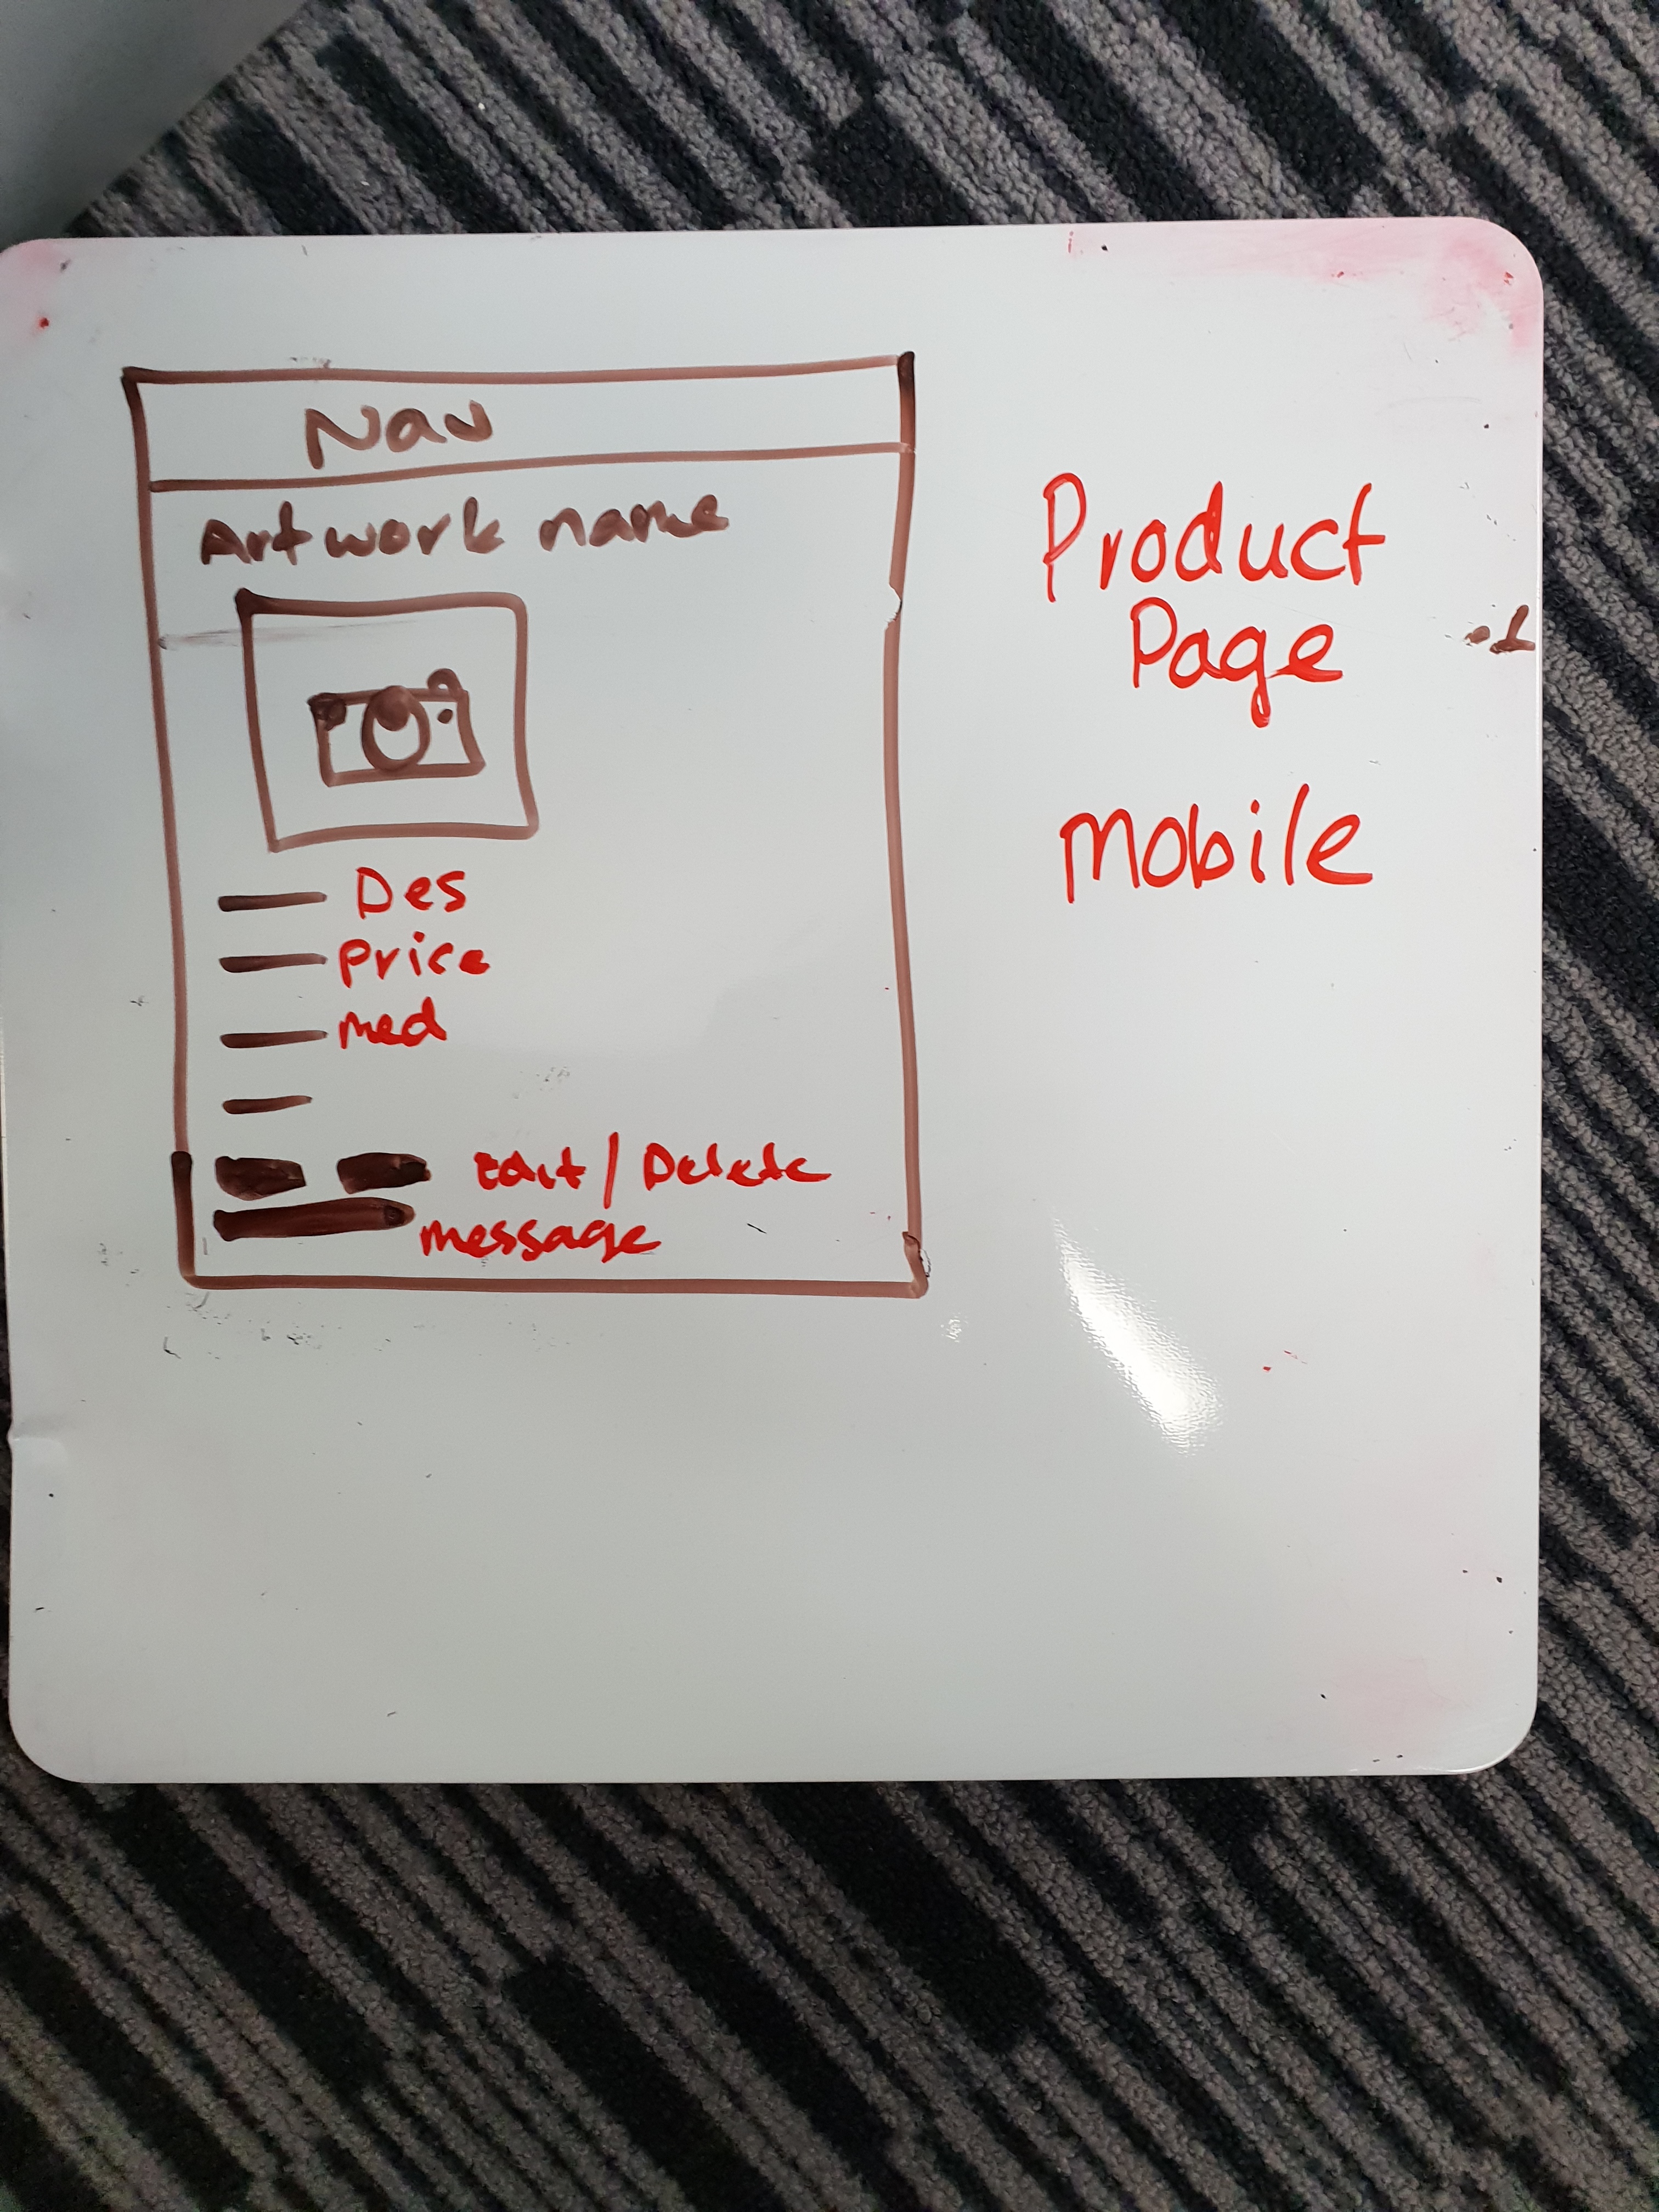 Nav
Artwork name
Des
Price
med
Edit / Delete
message
Product
Page
Mobile